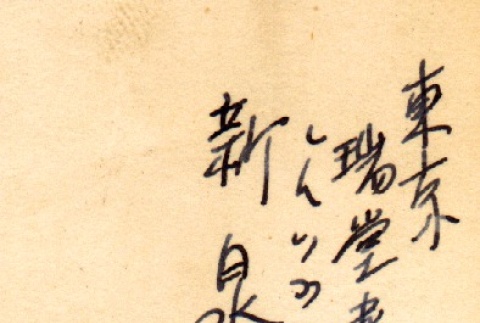 東京
瑞堂
しんいづ
新泉